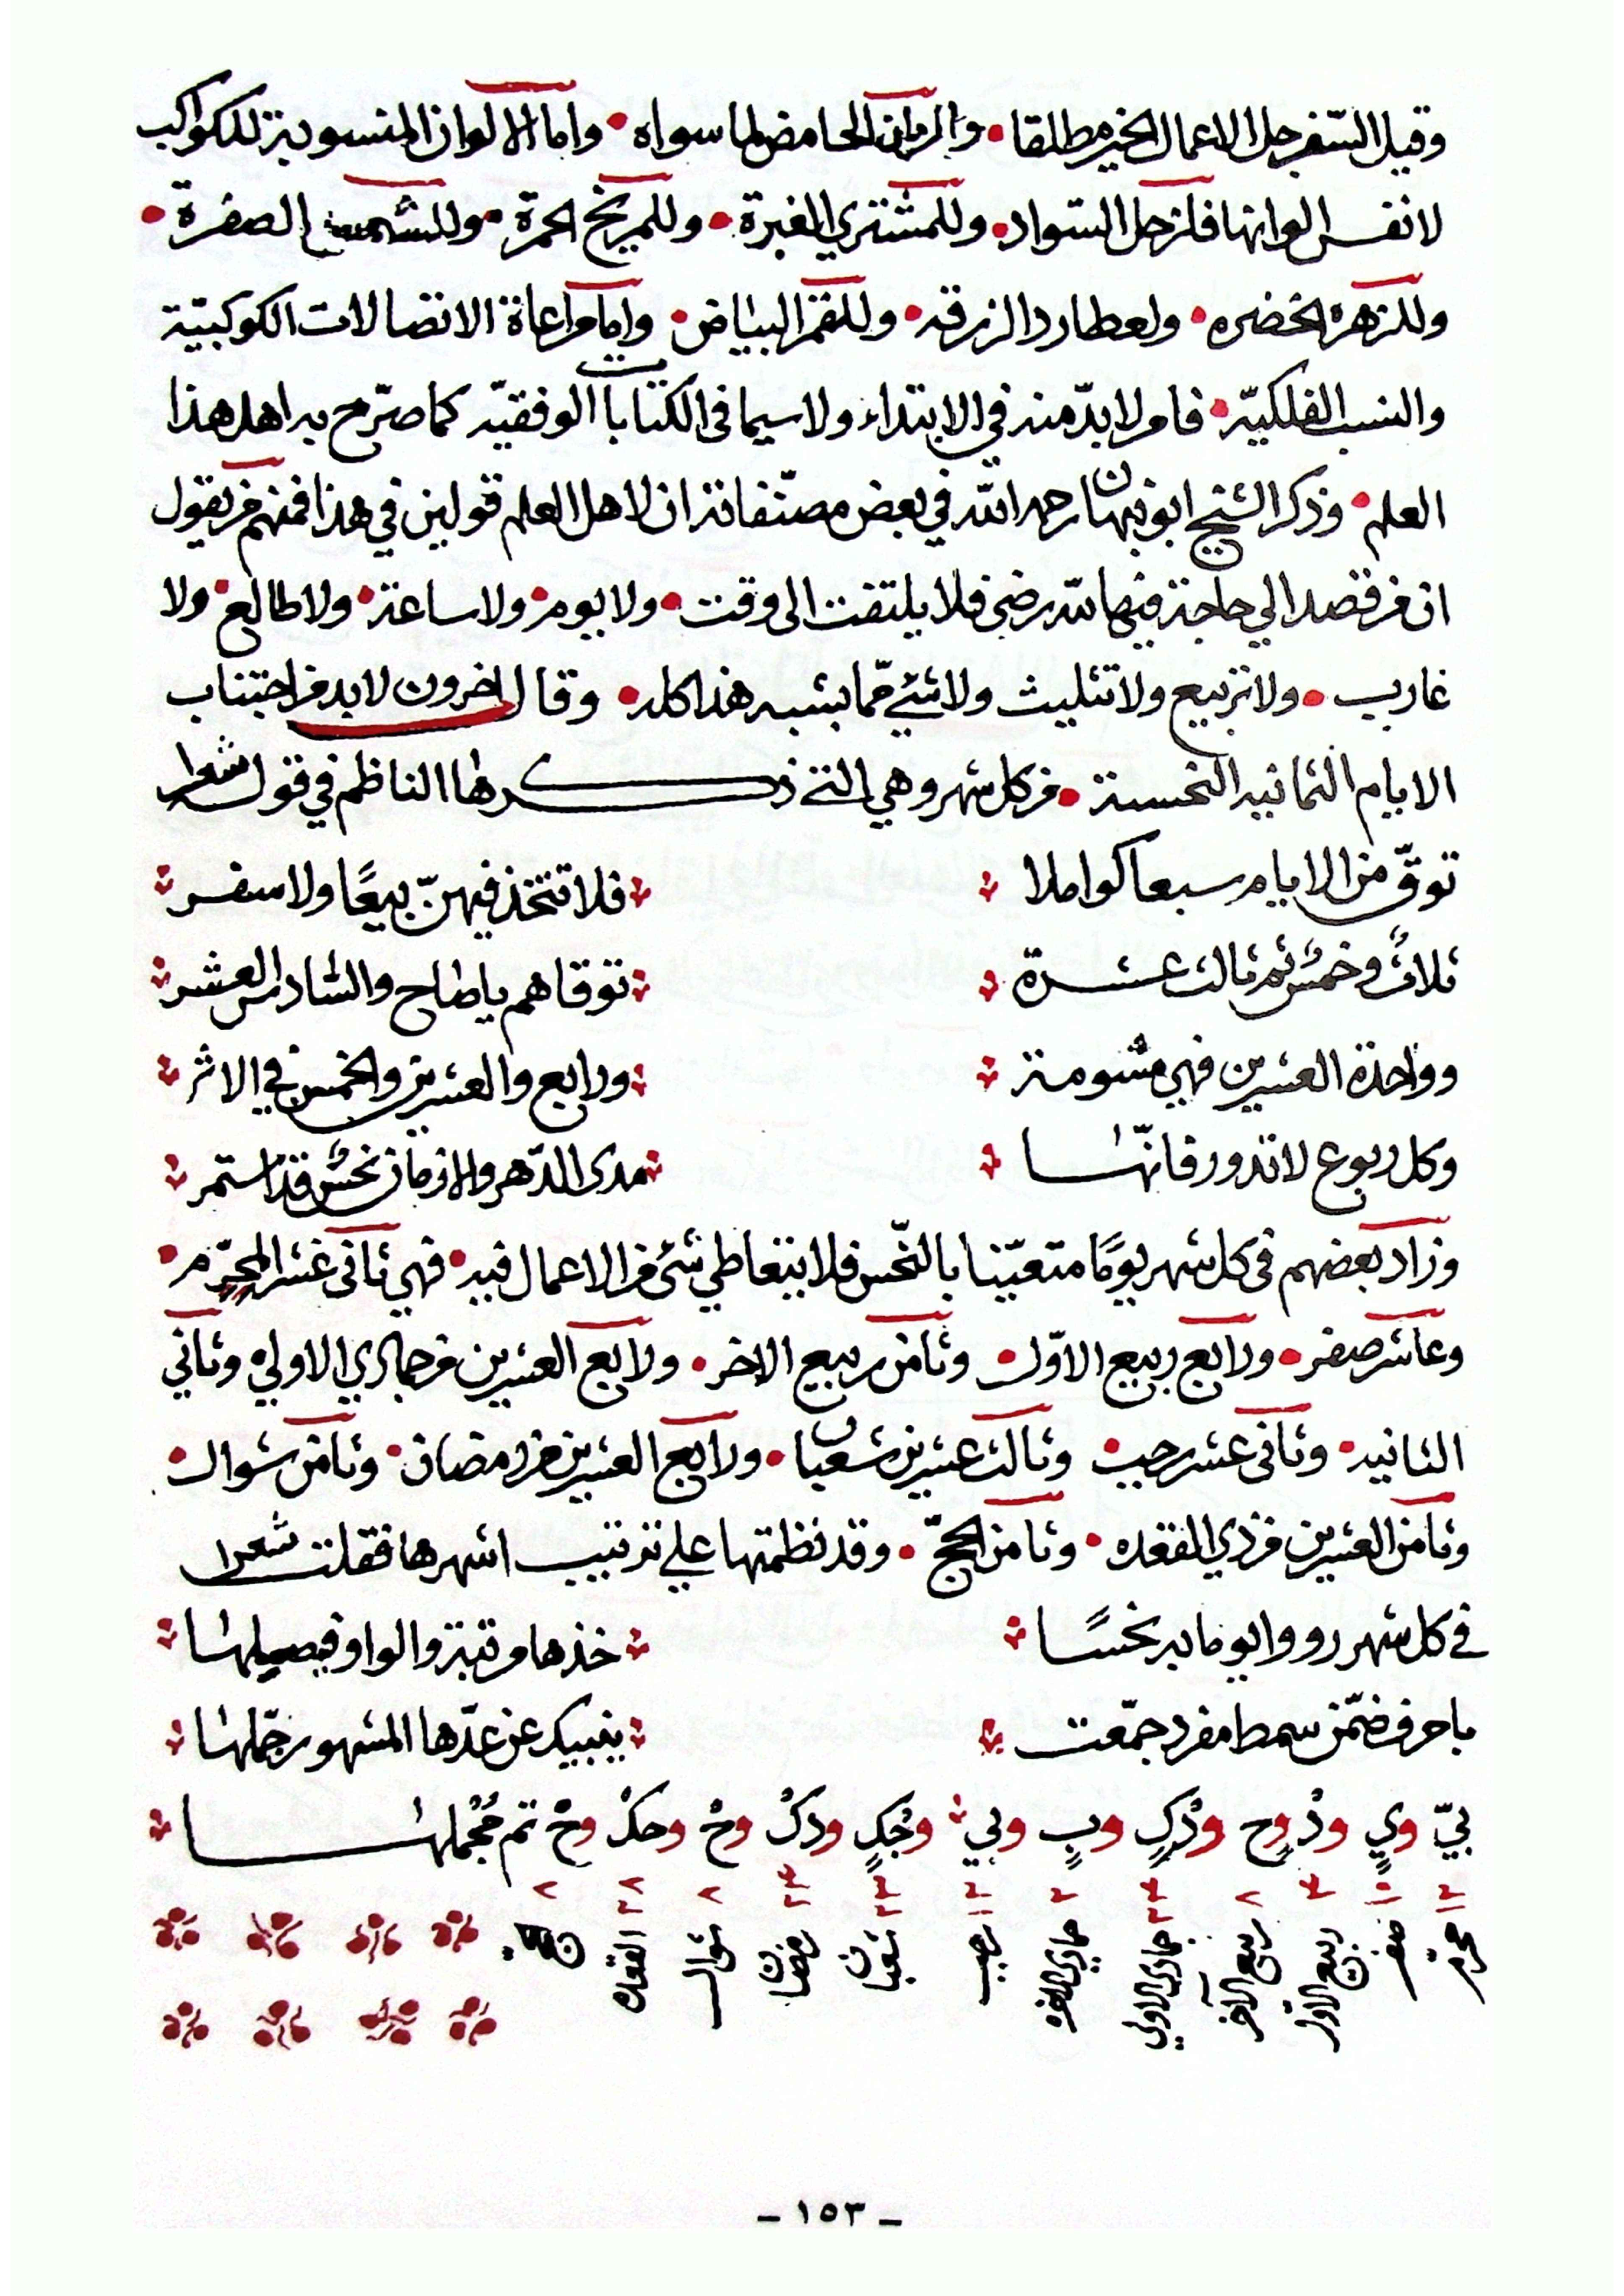 وقيل السّفرجل الاعمال الخير مطلقا • والرمان الحامض لما سواه • واما الالوان المنسوبة للكواكب
لانفس الوانها فلزحل السّواد • وللمشتري الغبرة • وللمريخ الحمرة • وللشمس الصفرة •
وللزهرة الخضره • ولعطارد الزرقه • وللقمر البياض • واما مراعاة الاتصالات الكوكبيّة
والنسب الفلكيّه • فامر لابدّ منه في الابتداء ولا سيما في الكتابات الوفقيّه كما صرّح به اهل هذا
العلم • وذكر الشيخ ابو نبهان رحمه الله في بعض مصنّفاته ان لاهل العلم قولين في هذا فمنهم من يقول
ان من قصد الي حاجة فيها لله رضى فلا يلتفت الى وقت • ولا يوم • ولا ساعة • ولا طالع • ولا
غارب • ولا تربيع ولا تثليث ولا شئ ممّا يشبه هذا كله • وقال اخرون لابد من اجتناب
الايام الثمانيه النحسة • من كل شهر وهي التي ذكرها الناظم في قوله شعرا
توقّ من الايام سبعا كواملا فلا تتخذ فيهنّ بيعًا ولا سفر
ثلاثٌ وخمسٌ ثم ثالث عشرة توقاهم ياصاح والسّادس العشر
وواحدة العشرين فهي مشومة ورابع والعشرين والخمس في الاثر
وكل ربوع لاتدور فانّها مدى الدّهر والازمان نحسٌ قد استمر
وزاد بعضهم في كل شهر يومًا متعيّنا بالنّحس فلا يتعاطي شئ من الاعمال فيه • فهي ثاني عشر المحرّم •
وعاشر صفر • ورابع ربيع الاوّل • وثامن ربيع الاخر • ورابع العشرين من جمادي الاولي وثاني
الثانيه • وثاني عشر رجب • وثالث عشرين شعبان • ورابع العشرين من رمضان • وثامن شوال •
وثامن العشرين من ذي القعده • وثامن الحجّ • وقد نظمتها علي ترتيب اشهرها فقلت شعرا
في كل شهر رووا يوما به نحسًا خذها مرتبة والواو فيصلها
باحرف ضمّن سمط مفرد جمّعت ينبيك عن عدّها المشهور جمّلها
بيّ ويٍ ودْ وح ودْكٍ وبٍ وبي وجْكٍ ودكْ وحْ وحكْ وحْ تم مُجْملها
محرم صفر ربيع الاول ربيع الآخر جمادى الاولي جمادي الاخره رجب شعبان رمضان شوال القعده
– ١٥٣ –